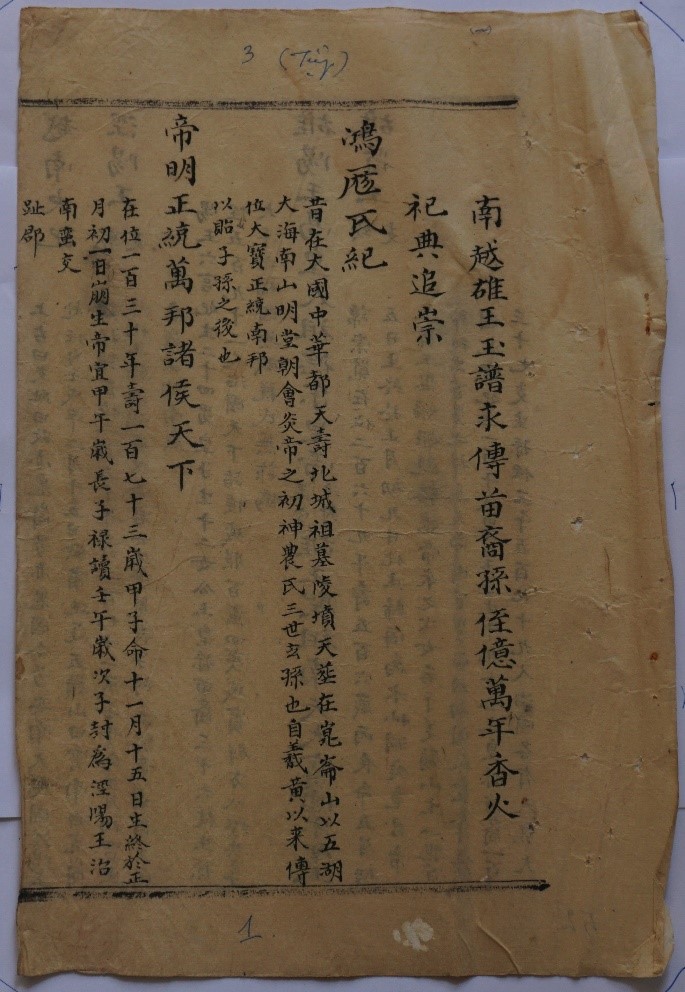 3 (Tiếp)
南越雄王玉譜永傳苗裔孫侄億萬年香火
祀典追崇
鴻厖氏紀
昔在大國中華都天壽北城祖墓陵墳天塟在崑崙山以五湖
大海南山明堂朝會炎帝之初神農氏三世玄孫也自羲黃以来傳
位大寶正統南邦
以貽子孫之後也
帝明正統萬邦諸侯天下
在位一百三十年壽一百七十三歲甲子命十一月十五日生終於正
月初一日崩生帝宜甲午歲長子禄讀壬午歲次子封為涇陽王治
南蛮交
趾郡
1